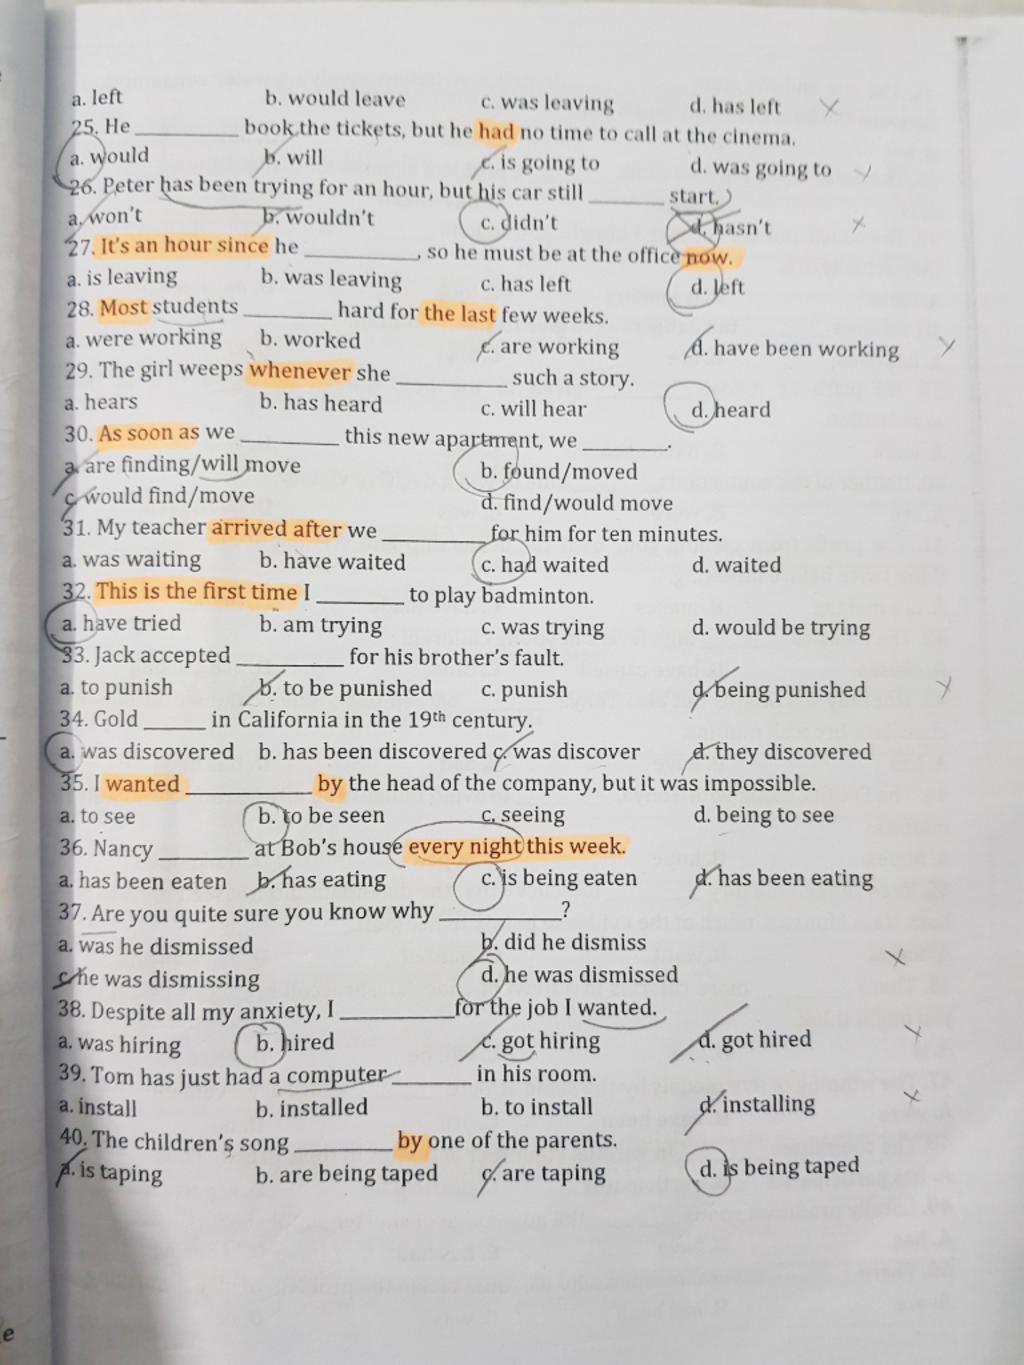 a. left b. would leave c. was leaving d. has left
25. He __________ book the tickets, but he had no time to call at the cinema.
a. would b. will c. is going to d. was going to
26. Peter has been trying for an hour, but his car still ________ start.
a. won't b. wouldn't c. didn't d. hasn't
27. It's an hour since he ___________, so he must be at the office now.
a. is leaving b. was leaving c. has left d. left
28. Most students _________ hard for the last few weeks.
a. were working b. worked c. are working d. have been working
29. The girl weeps whenever she ___________ such a story.
a. hears b. has heard c. will hear d. heard
30. As soon as we __________ this new apartment, we _________.
a. are finding/will move b. found/moved
c. would find/move d. find/would move
31. My teacher arrived after we __________ for him for ten minutes.
a. was waiting b. have waited c. had waited d. waited
32. This is the first time I _________ to play badminton.
a. have tried b. am trying c. was trying d. would be trying
33. Jack accepted ___________ for his brother's fault.
a. to punish b. to be punished c. punish d. being punished
34. Gold ______ in California in the 19th century.
a. was discovered b. has been discovered c. was discover d. they discovered
35. I wanted _____________ by the head of the company, but it was impossible.
a. to see b. to be seen c. seeing d. being to see
36. Nancy _________ at Bob's house every night this week.
a. has been eaten b. has eating c. is being eaten d. has been eating
37. Are you quite sure you know why ____________?
a. was he dismissed b. did he dismiss
c. he was dismissing d. he was dismissed
38. Despite all my anxiety, I ___________ for the job I wanted.
a. was hiring b. hired c. got hiring d. got hired
39. Tom has just had a computer ________ in his room.
a. install b. installed c. to install d. installing
40. The children's song __________ by one of the parents.
a. is taping b. are being taped c. are taping d. is being taped
e